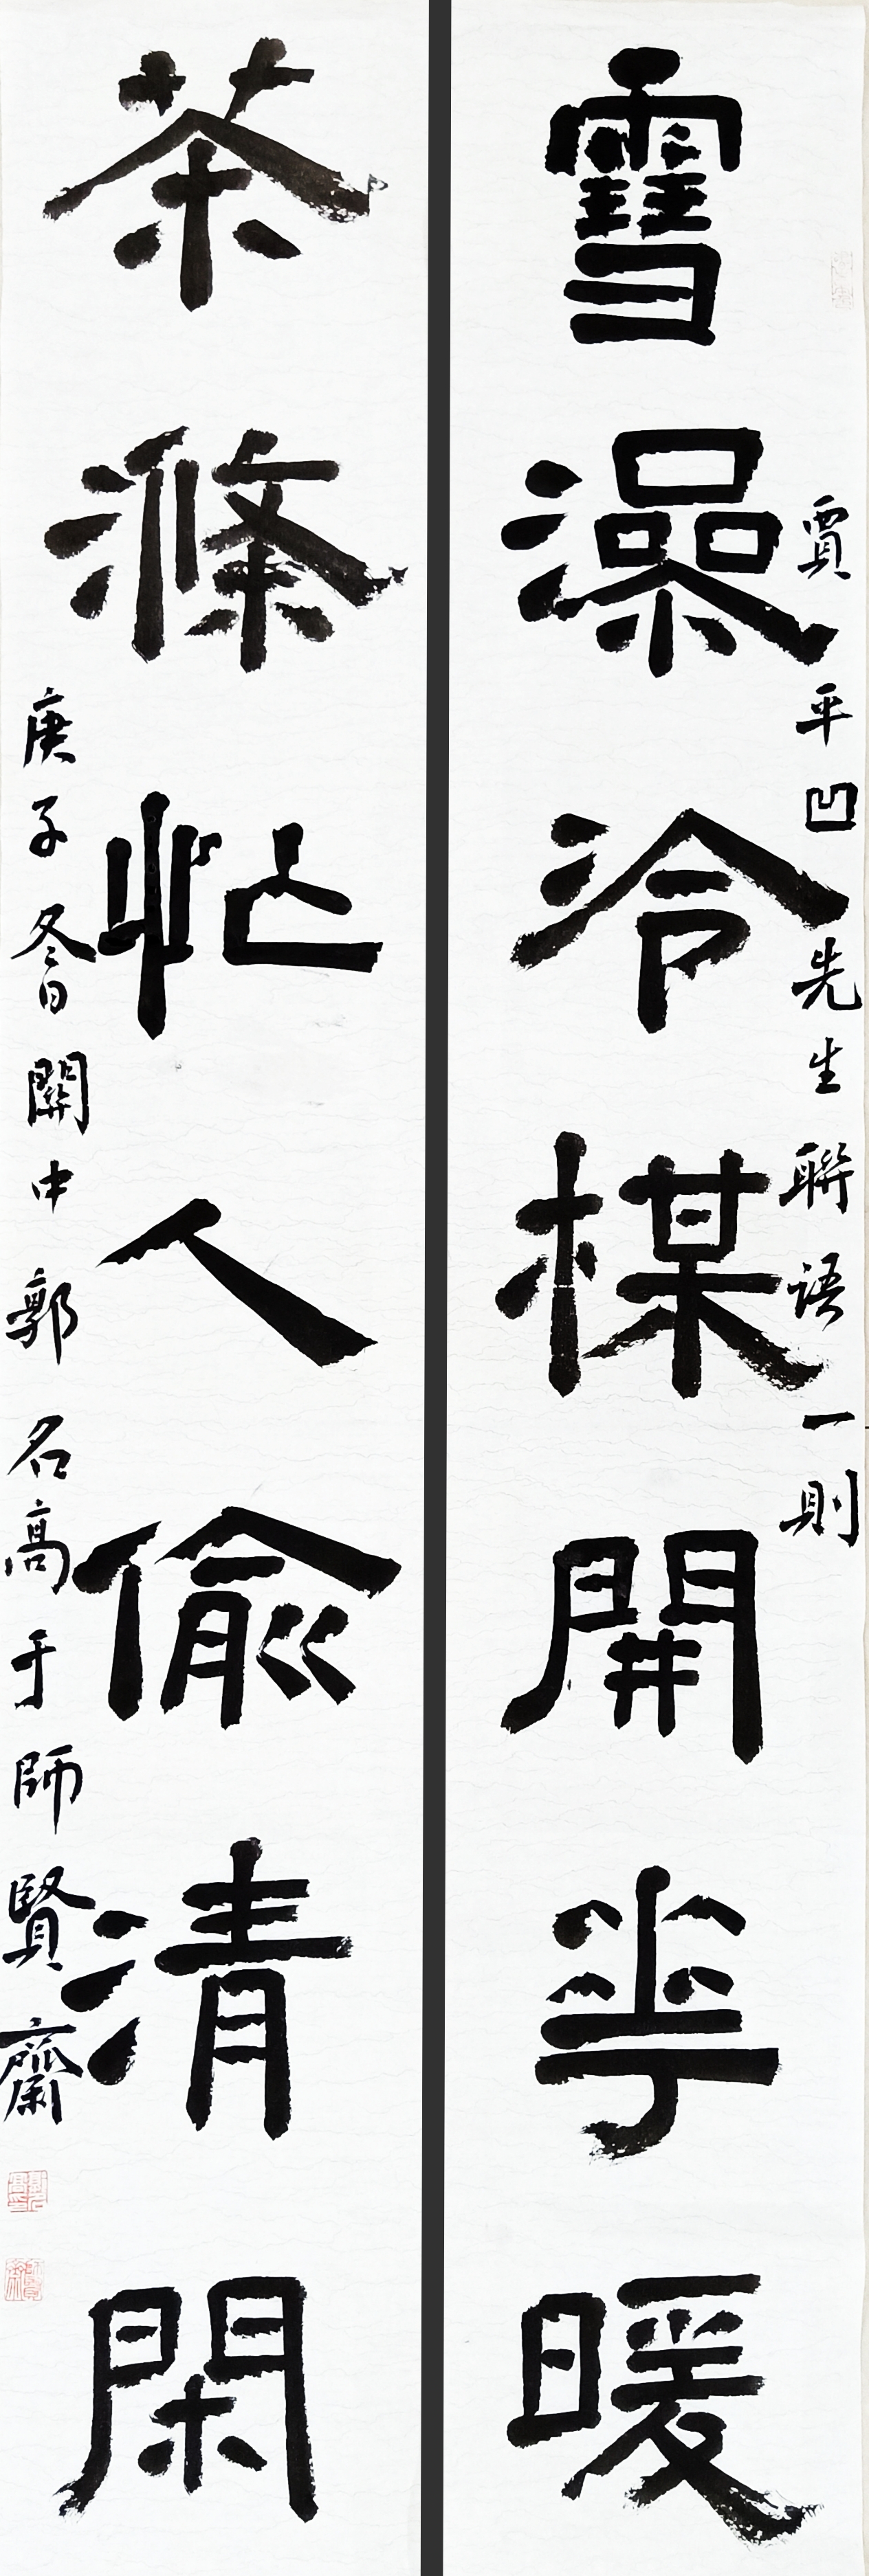 賈平凹先生聯語一則
雪澡冷楳開華暖
茶滌忙人偷清閑
庚子冬日關中郭名高于師賢齋